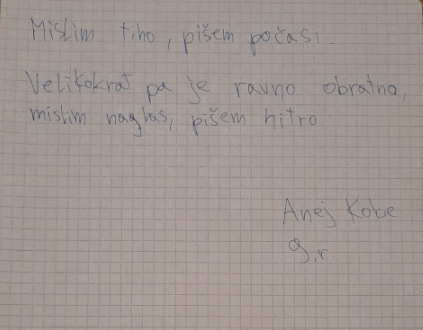 Mislim tiho, pišem počasi.
Velikokrat pa je ravno obratno,
mislim naglas, pišem hitro
Anej Kobe
9.r.